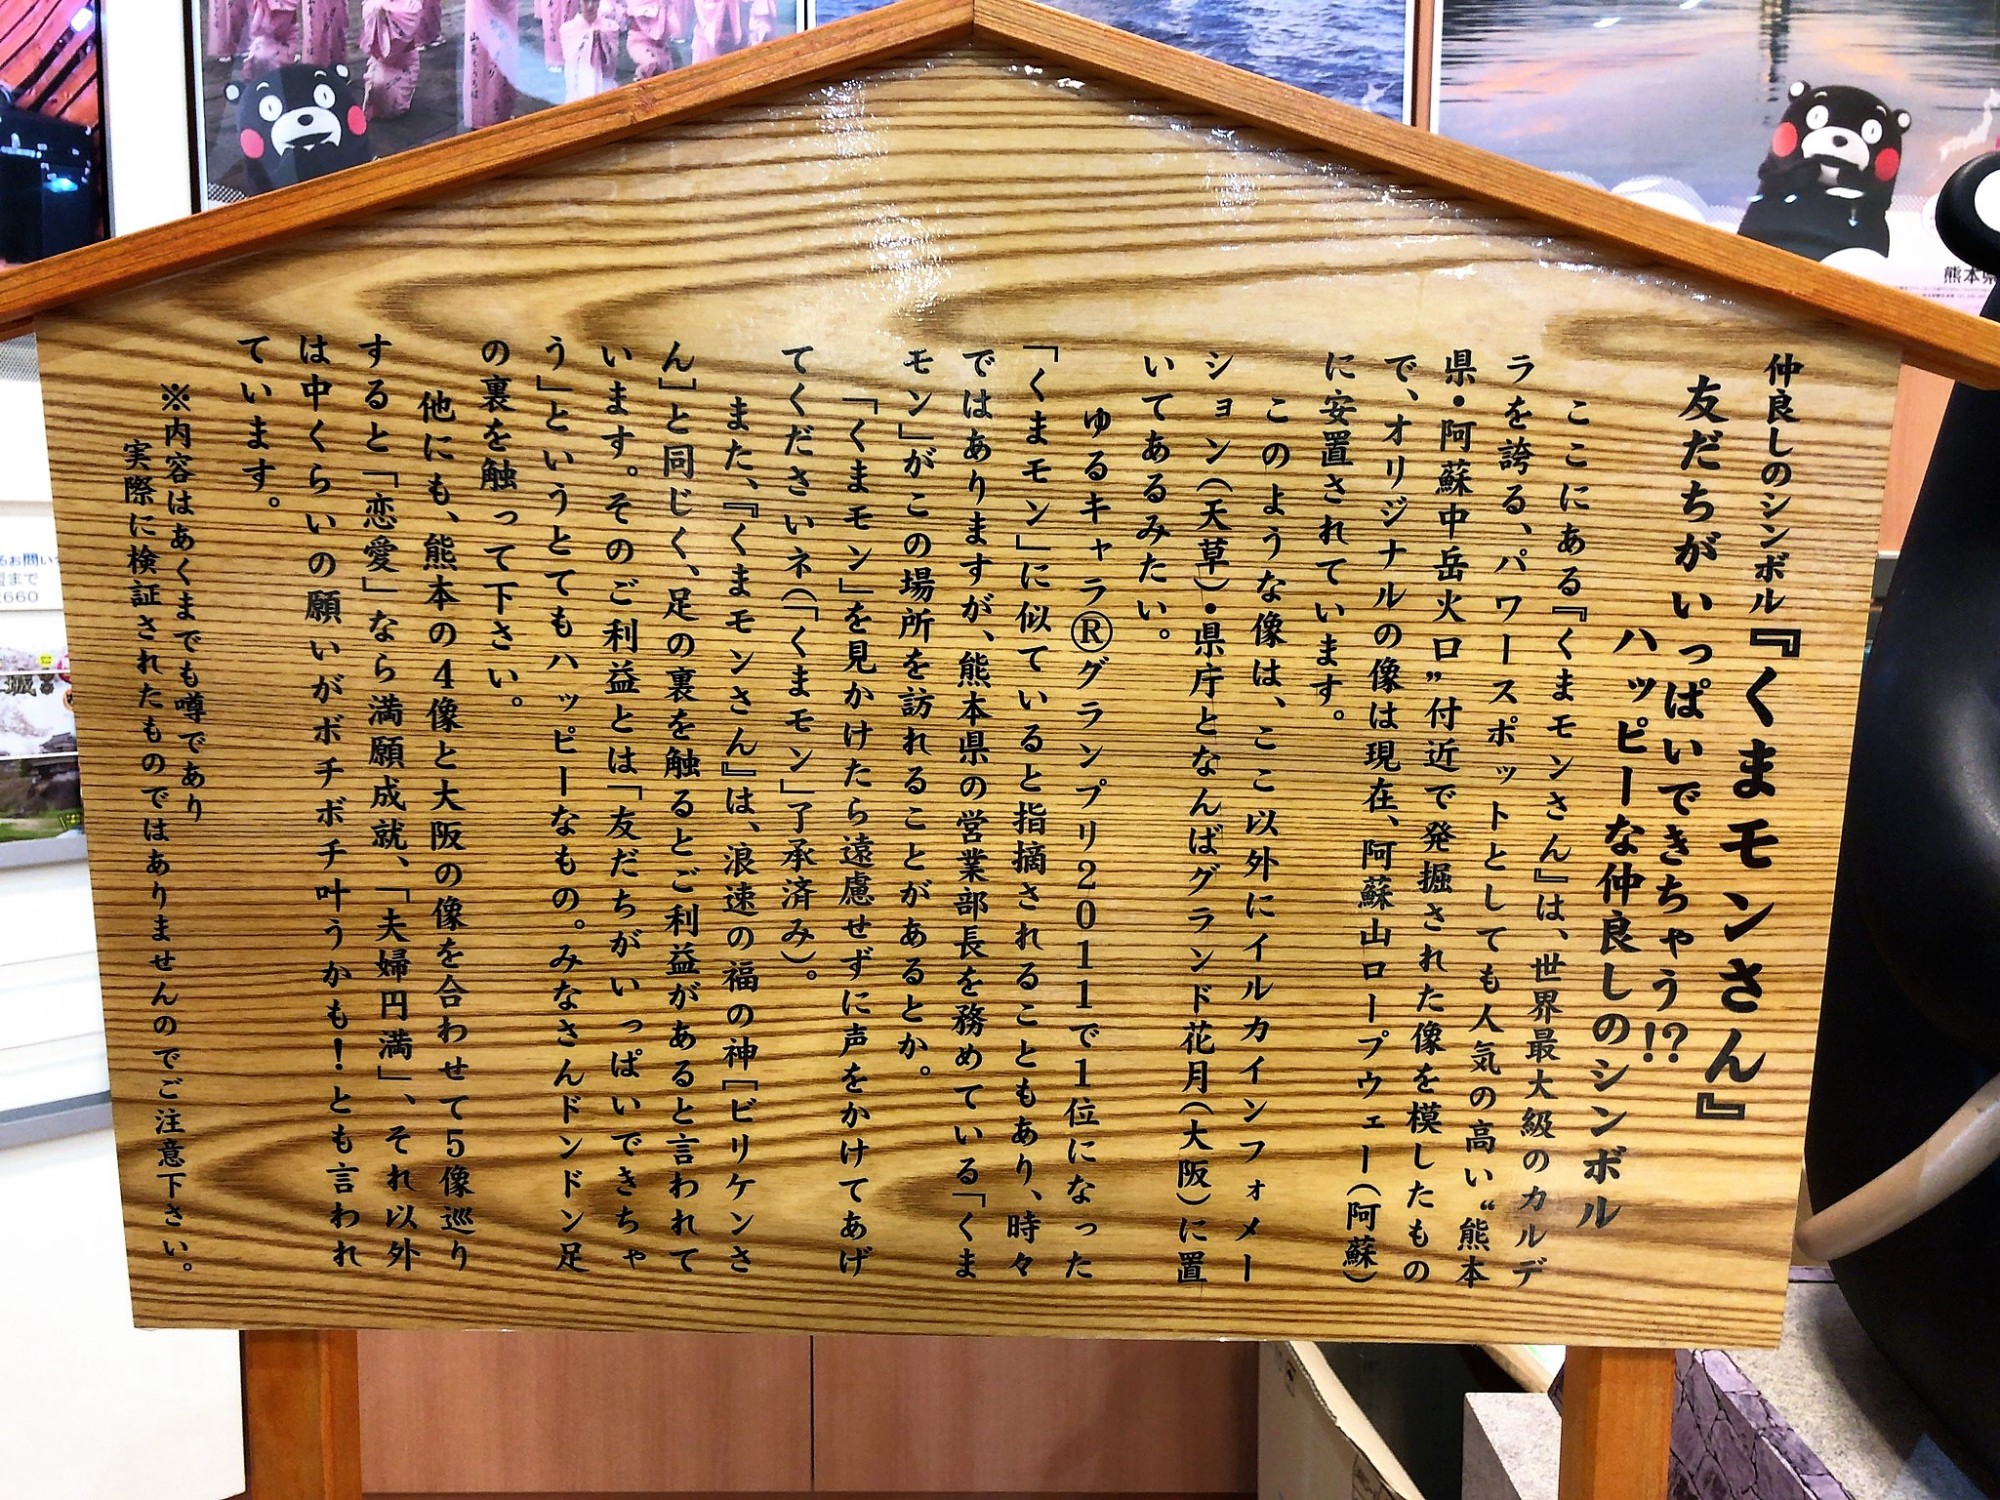 仲良しのシンボル『くまモンさん』
友だちがいっぱいできちゃう!?
ハッピーな仲良しのシンボル
ここにある『くまモンさん』は、世界最大級のカルデ
ラを誇る、パワースポットとしても人気の高い“熊本
県・阿蘇中岳火口”付近で発掘された像を模したもの
で、オリジナルの像は現在、阿蘇山ロープウェー(阿蘇)
に安置されています。
このような像は、ここ以外にイルカインフォメー
ション(天草)・県庁となんばグランド花月(大阪)に置
いてあるみたい。
ゆるキャラ®グランプリ2011で1位になった
「くまモン」に似ていると指摘されることもあり、時々
ではありますが、熊本県の営業部長を務めている「くま
モン」がこの場所を訪れることがあるとか。
「くまモン」を見かけたら遠慮せずに声をかけてあげ
てくださいネ(「くまモン」了承済み)。
また、『くまモンさん』は、浪速の福の神[ビリケンさ
ん]と同じく、足の裏を触るとご利益があると言われて
います。そのご利益とは「友だちがいっぱいできちゃ
う」というとてもハッピーなもの。みなさんドンドン足
の裏を触って下さい。
他にも、熊本の4像と大阪の像を合わせて5像巡り
すると「恋愛」なら満願成就、「夫婦円満」、それ以外
は中くらいの願いがボチボチ叶うかも!とも言われ
ています。
※内容はあくまでも噂であり
実際に検証されたものではありませんのでご注意下さい。
熊本県
るお問い
まで
2660
城